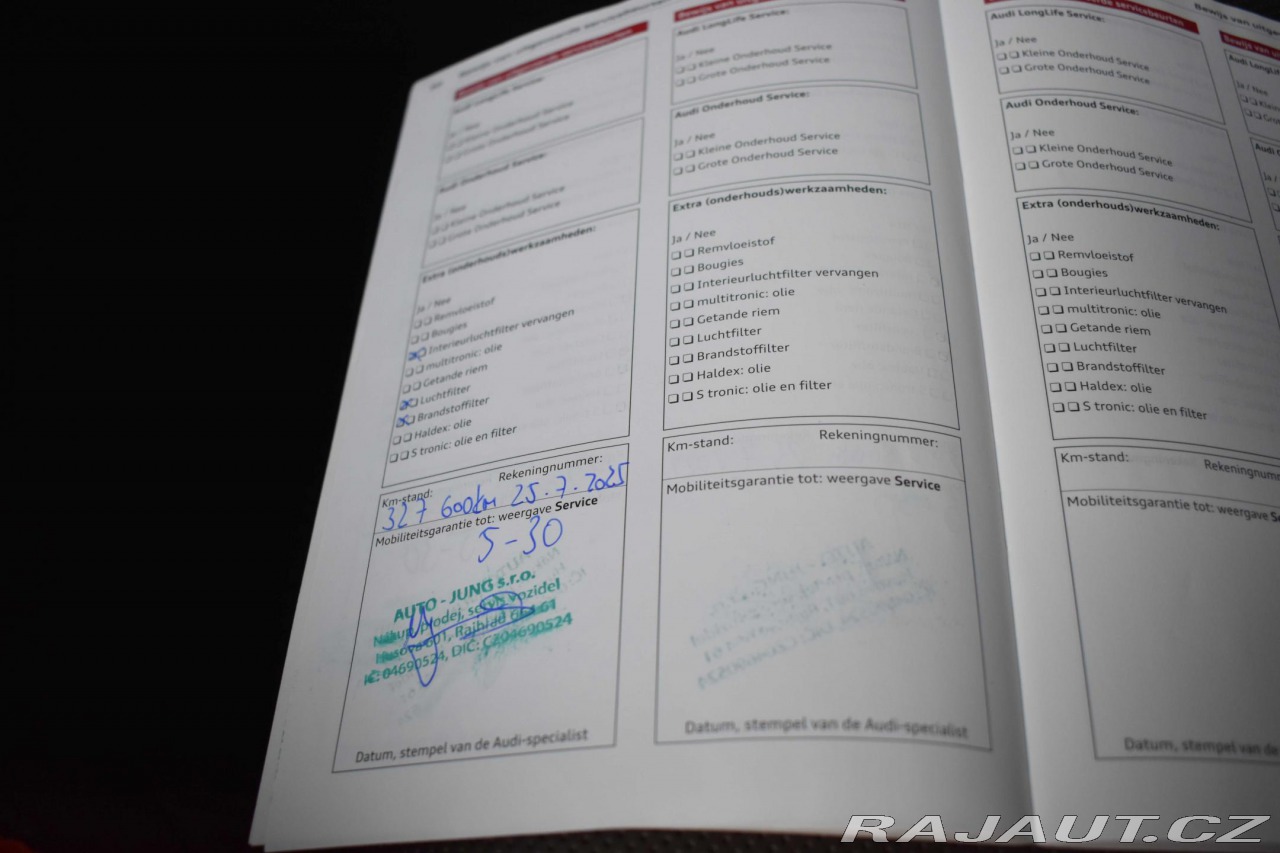 Audi LongLife Service:
Ja / Nee
Kleine Onderhoud Service
Grote Onderhoud Service
Audi Onderhoud Service:
Ja / Nee
Kleine Onderhoud Service
Grote Onderhoud Service
Extra (onderhouds)werkzaamheden:
Ja / Nee
Remvloeistof
Bougies
Interieurluchtfilter vervangen
multitronic: olie
Getande riem
Luchtfilter
Brandstoffilter
Haldex: olie
S tronic: olie en filter
Km-stand:
Rekeningnummer:
327 600km 25.7.2025
Mobiliteitsgarantie tot: weergave Service
5-30
AUTO - JUNG s.r.o.
Nákup, prodej, servis vozidel
Husova 601, Rajhrad 664 61
IČ: 04690524, DIČ: CZ04690524
Datum, stempel van de Audi-specialist
Audi LongLife Service:
Ja / Nee
Kleine Onderhoud Service
Grote Onderhoud Service
Audi Onderhoud Service:
Ja / Nee
Kleine Onderhoud Service
Grote Onderhoud Service
Extra (onderhouds)werkzaamheden:
Ja / Nee
Remvloeistof
Bougies
Interieurluchtfilter vervangen
multitronic: olie
Getande riem
Luchtfilter
Brandstoffilter
Haldex: olie
S tronic: olie en filter
Km-stand:
Rekeningnummer:
Mobiliteitsgarantie tot: weergave Service
Datum, stempel van de Audi-specialist
servicebeurten
Audi LongLife Service:
Ja / Nee
Kleine Onderhoud Service
Grote Onderhoud Service
Audi Onderhoud Service:
Ja / Nee
Kleine Onderhoud Service
Grote Onderhoud Service
Extra (onderhouds)werkzaamheden:
Ja / Nee
Remvloeistof
Bougies
Interieurluchtfilter vervangen
multitronic: olie
Getande riem
Luchtfilter
Brandstoffilter
Haldex: olie
S tronic: olie en filter
Km-stand:
Rekeningnumm
Mobiliteitsgarantie tot: weergave Se
Datum, stempel van de
RAJAUT.CZ